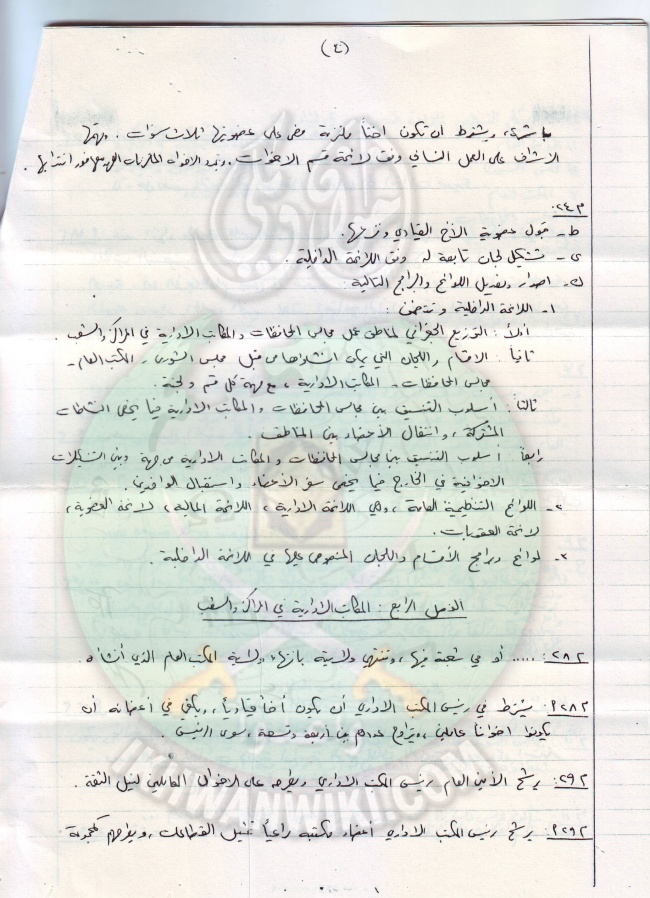 (٤)
مباشرة، ويشترط أن تكون اختاً ملتزمة مضى على عضويتها ثلاث سنوات. ومهمتها
الاشراف على العمل النسائي وفق لائحة قسم الاخوات.
م٢٤:
ط- قبول عضوية الأخ القيادي ونزعها.
ى- تشكيل لجان تابعة له وفق اللائحة الداخلية.
ك- اصدار وتعديل اللوائح والبرامج التالية:
١- اللائحة الداخلية وتتضمن:
أولاً: التوزيع الجغرافي لمناطق عمل مجالس المحافظات والمكاتب الادارية في المراكز والشعب.
ثانياً: الاقسام واللجان التي يمكن انشاؤها من قبل مجلس الشورى - المكتب العام -
مجالس المحافظات - المكاتب الادارية، مع مهمة كل قسم ولجنة.
ثالثاً: أسلوب التنسيق بين مجالس المحافظات والمكاتب الادارية فيما يخص النشاطات
المشتركة، وانتقال الأعضاء بين المناطق.
رابعاً: أسلوب التنسيق بين مجالس المحافظات والمكاتب الادارية من جهة وبين التشكيلات
الاخوانية في الخارج فيما يخص سفر الأعضاء واستقبال الوافدين.
٢- اللوائح التنظيمية العامة، وهي اللائحة الادارية، اللائحة المالية، لائحة العضوية،
لائحة العقوبات.
٣- لوائح وبرامج الأقسام واللجان المنصوص عليها في اللائحة الداخلية.
الفصل الرابع: المكاتب الادارية في المراكز والشعب
م٢٨: ..... أو في شعبة فيها، وتنتهي ولايته بانتهاء ولاية المكتب العام الذي أنشأه.
م٢٨: يشترط في رئيس المكتب الاداري أن يكون أخاً قيادياً، ويكفي في أعضائه أن
يكونوا اخواناً عاملين، ويتراوح عددهم بين أربعة وتسعة، سوى الرئيس.
م٢٩: يرشح الأمين العام رئيس المكتب الاداري ويطرحه على الاخوان العاملين لنيل الثقة.
م٢٩: يرشح رئيس المكتب الاداري أعضاء مكتبه مراعياً تمثيل القطاعات، ويطرحهم كمجموعة
IKHWANWIKI.COM